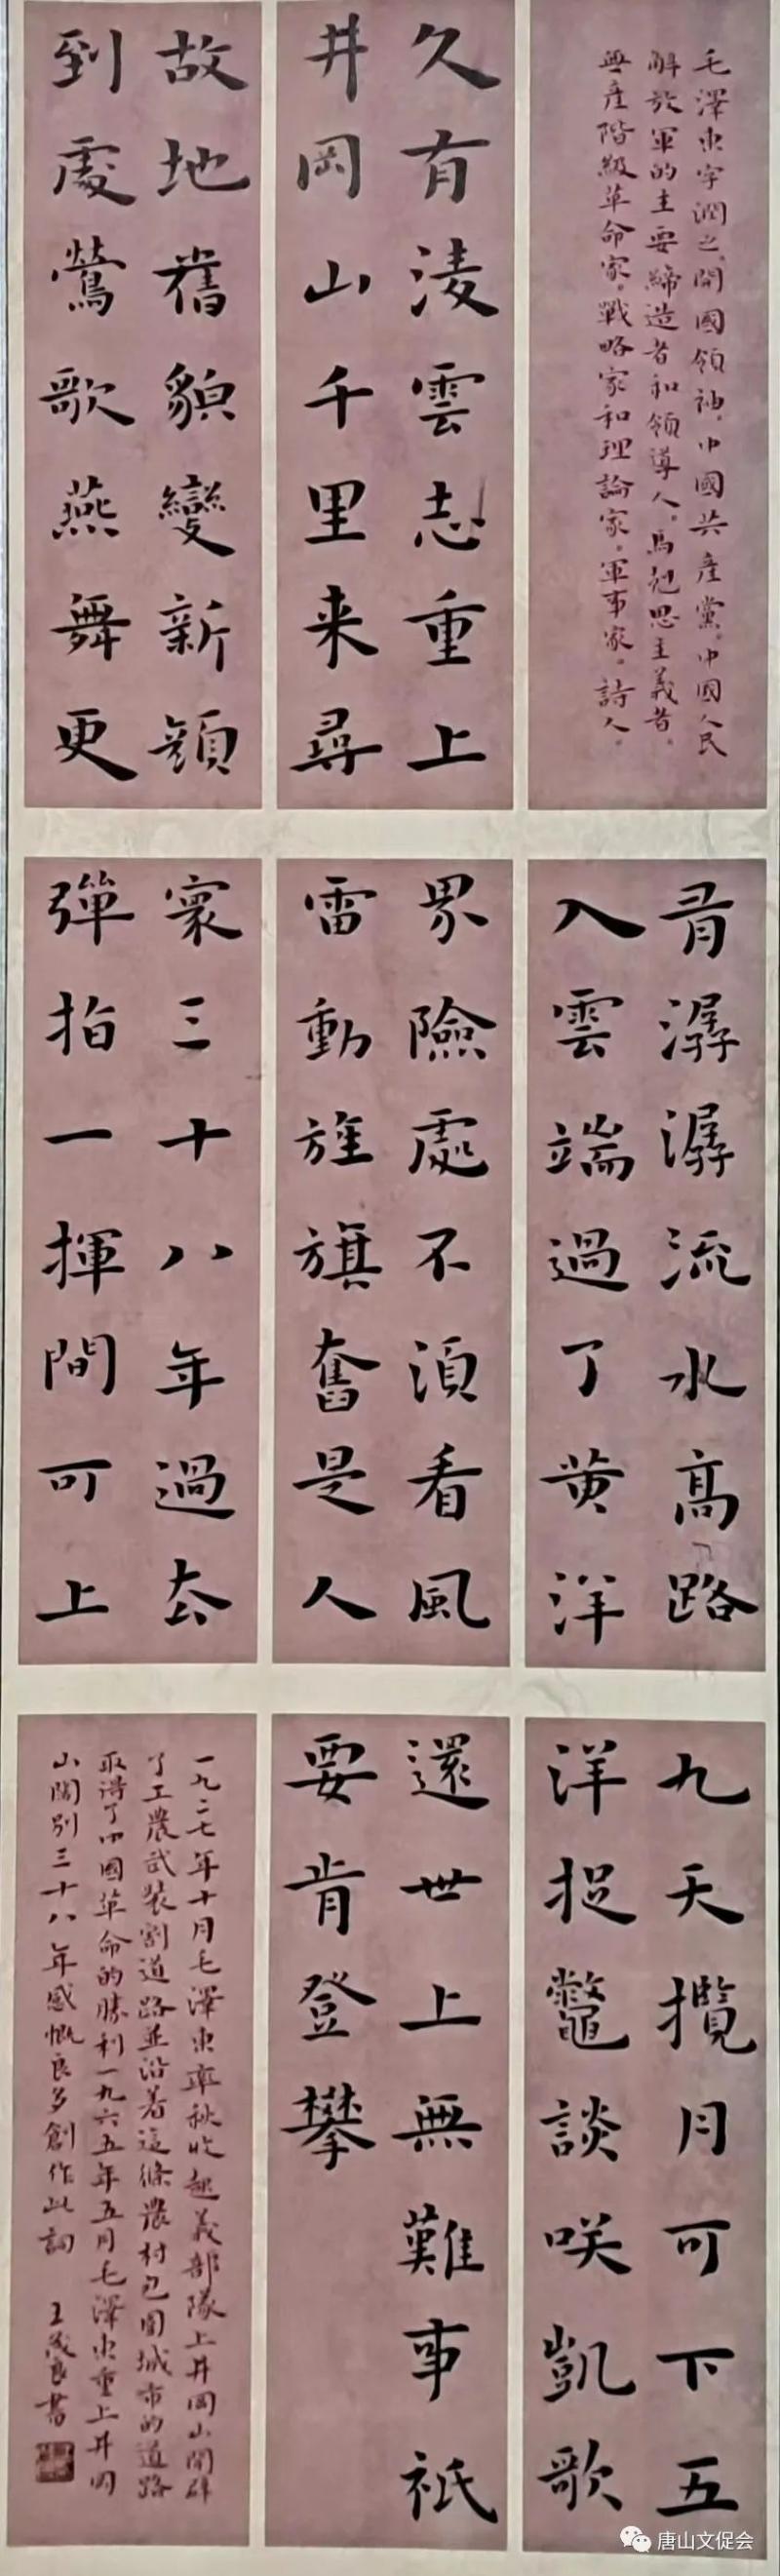 毛澤東字潤之。開國領袖。中國共產黨。中國人民
解放軍的主要締造者和領導人。馬克思主義者。
無產階級革命家。戰略家和理論家。軍事家。詩人。
久有淩雲志重上
井岡山千里来尋
故地舊貌變新顏
到處鶯歌燕舞更
有潺潺流水高路
入雲端過了黄洋
界險處不須看風
雷動旌旗奮是人
寰三十八年過去
彈指一揮間可上
九天攬月可下五
洋捉鱉談咲凱歌
還世上無難事祇
要肯登攀
一九二七年十月毛澤東率秋收起義部隊上井岡山開辟
了工農武裝割道路並沿着這條農村包圍城市的道路
取得了中國革命的勝利一九六五年五月毛澤東重上井岡
山闊別三十八年感慨良多創作此詞 王良書
唐山文促会